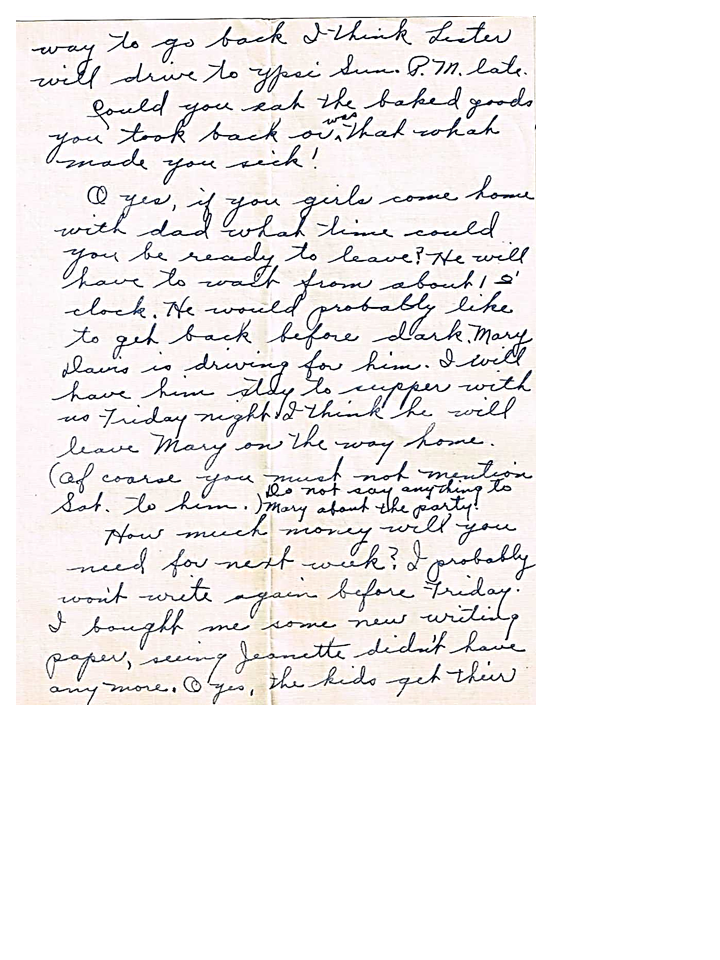 way to go back I think Lester
will drive to Ypsi Sun. P.M. late.
Could you eat the baked goods
you took back or was that what
made you sick!
O yes, if you girls come home
with dad what time could
you be ready to leave? He will
have to wait from about 1 o'
clock. He would probably like
to get back before dark. Mary
Davis is driving for him. I will
have him stay to supper with
us Friday night. I think he will
leave Mary on the way home.
(Of coarse you must not mention
Sat. to him.) Do not say anything to
Mary about the party!
How much money will you
need for next week? I probably
won't write again before Friday.
I bought me some new writing
paper, seeing Jeanette didn't have
any more. O yes, the kids get their